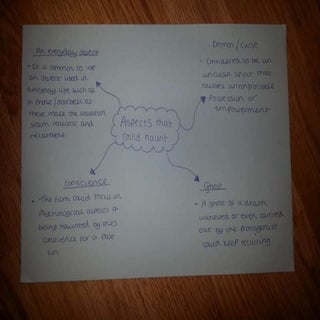 An everyday object
• It is common to use
an object used in
everyday life such as
a phone/doorbell as
these make the situation
seem realistic and
relateable.
Demon/curse
• Considered to be an
unclean spirit that
causes uncontrollable
Possession or
empowerment
Aspects that
could haunt
Conscience
• The film could focus on
Psychological aspects of
being haunted by ones
conscience for a past
sin
Ghost
• A ghost of a death
witnessed or even carried
out by the protagonist
could keep recurring